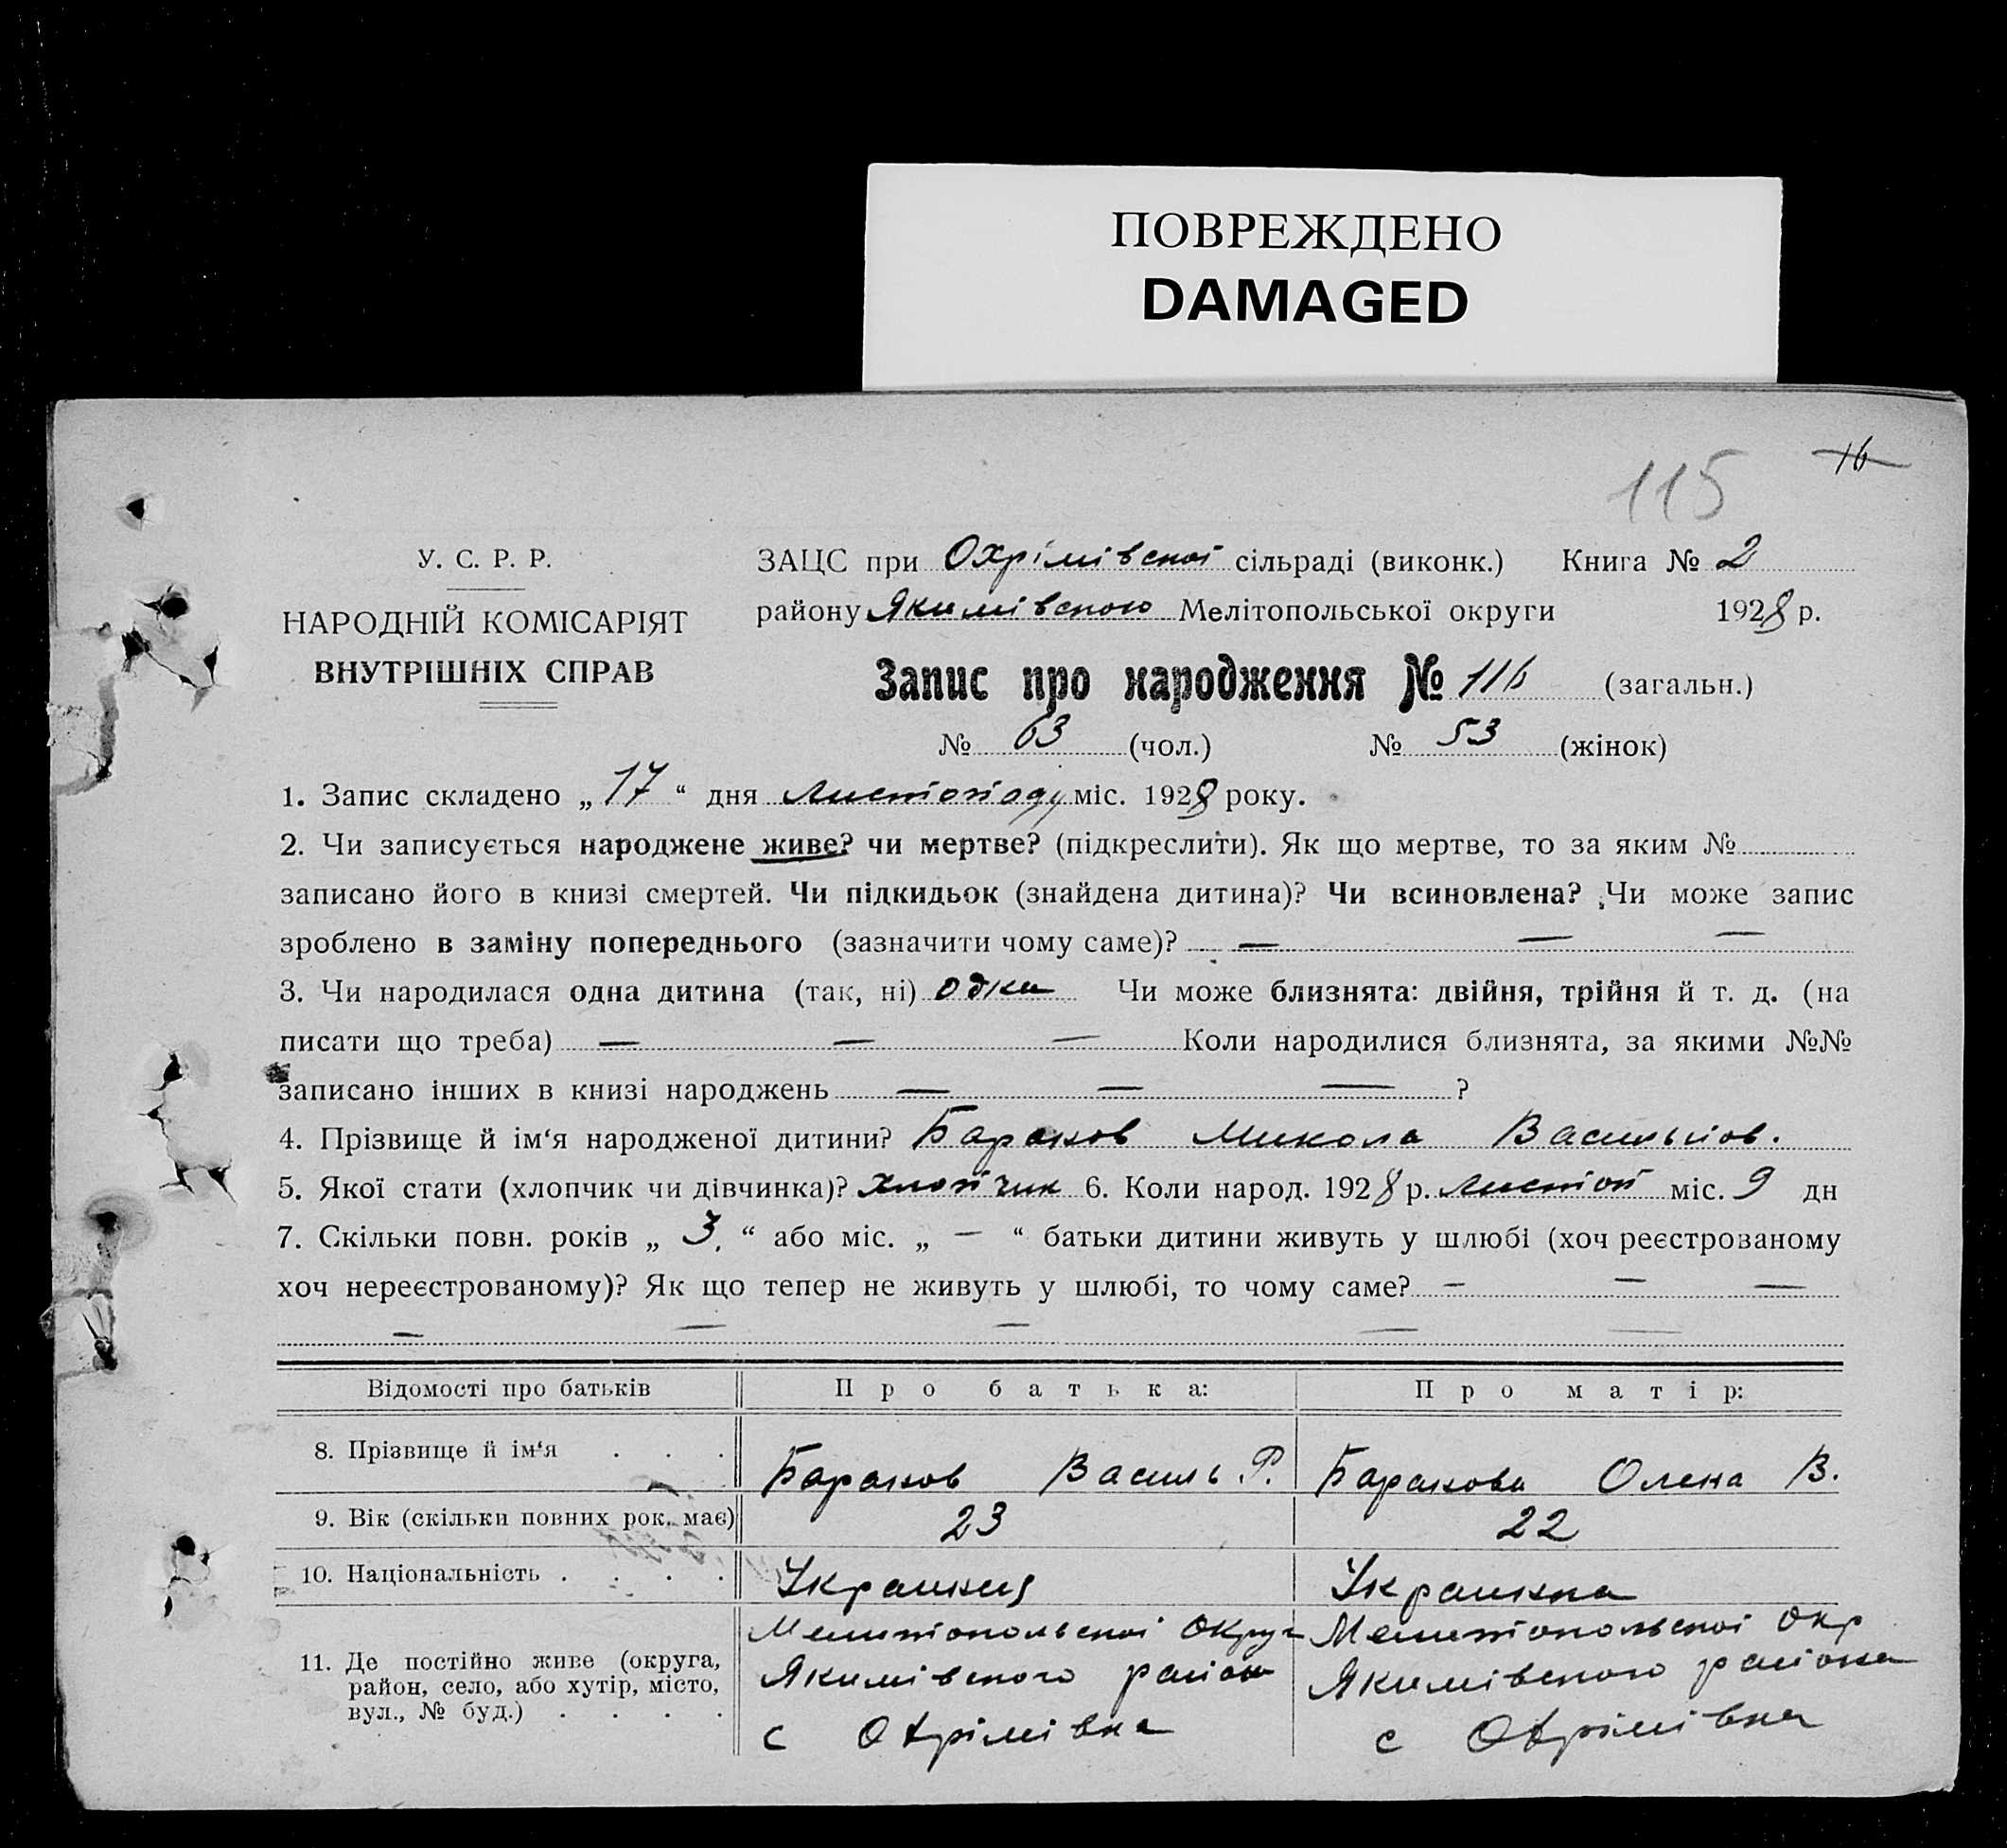 ПОВРЕЖДЕНО
DAMAGED
115 16
У. С. Р. Р.
НАРОДНІЙ КОМІСАРІЯТ
ВНУТРІШНІХ СПРАВ
ЗАЦС при Охрімівскої сільраді (виконк.) Книга № 2
району Якимівского Мелітопольської округи 1928 р.
Запис про народження № 116 (загальн.)
№ 63 (чол.) № 53 (жінок)
1. Запис складено „ 17 “ дня Листопаду міс. 1928 року.
2. Чи записується народжене живе? чи мертве? (підкреслити). Як що мертве, то за яким №
записано його в книзі смертей. Чи підкидьок (знайдена дитина)? Чи всиновлена? Чи може запис
зроблено в заміну попереднього (зазначити чому саме)? — — —
3. Чи народилася одна дитина (так, ні) одна Чи може близнята: двійня, трійня й т. д. (на
писати що треба) — — — Коли народилися близнята, за якими №№
записано інших в книзі народжень — — — ?
4. Прізвище й ім‘я народженої дитини? Баранов Микола Васильов.
5. Якої стати (хлопчик чи дівчинка)? хлопчик 6. Коли народ. 1928 р. листоп міс. 9 дн
7. Скільки повн. років „ 3. “ або міс. „ — “ батьки дитини живуть у шлюбі (хоч реєстрованому
хоч нереєстрованому)? Як що тепер не живуть у шлюбі, то чому саме? — — —
— — — — —
Відомості про батьків Про батька: Про матір:
8. Прізвище й ім‘я . . . Баранов Василь Р. Баранова Олена В.
9. Вік (скільки повних рок. має) 23 22
10. Національність . . . . Українка
11. Де постійно живе (округа,
район, село, або хутір, місто,
вул., № буд.) . . . .
Мелитопольскої Округ
Якимівского район
с Охрімівка
Мелитопольскої окр
Якимівского района
с Охрімівка